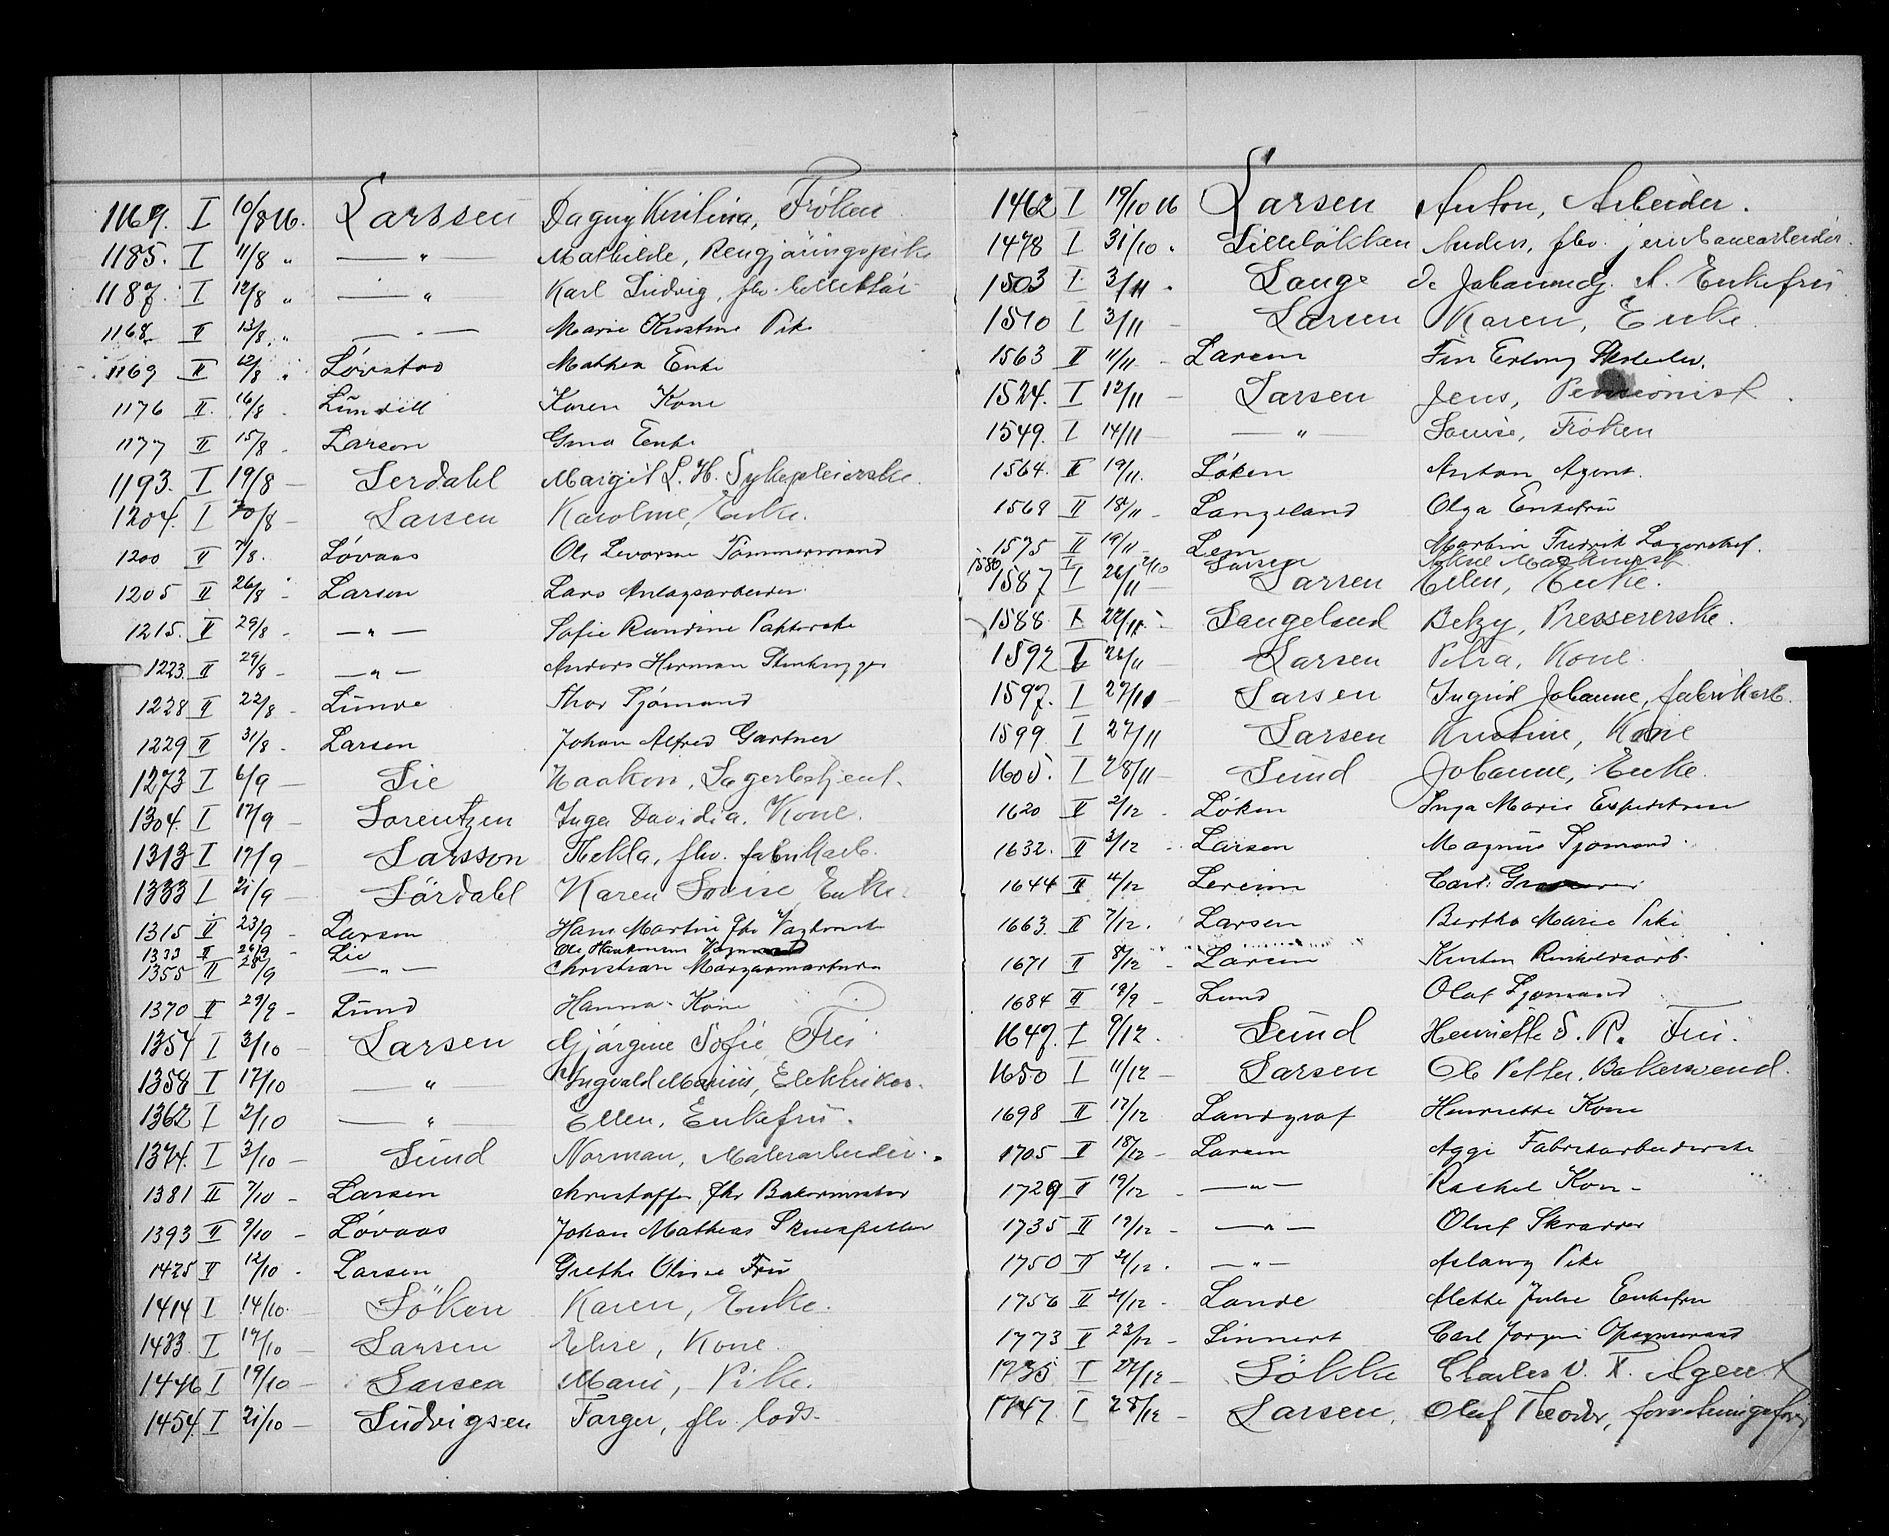 1169. I 10/8 16. Larssen Dagny Kristina, Frøken
1185. I 11/8 „ — „ — Mathilde, Rengjøringspike
1187. I 12/8 „ — „ Karl Ludvig, fhv.
1168 II 13/8 „ — „ — Marie Kristine Pike
1169 II 12/8 „ Løvstad Mathea Enke
1176 II. 16/8 - Lundell Karen Kone
1177 II 15/8 - Larson Enke
1193. I 19/8 — Lerdahl Margit L. H. Sykepleierske.
1204. I 20/8 — Larsen Karoline, Enke.
1200 II /8. Løvaas Ole Tømmermand
1205 II 26/8 - Larsen Lars Anlægsarbeider
1215. II 29/8 - — „ — Sofie Randine
1223. II 29/8 - — „ — Anders Herman Stenhugger
1228 II 22/8 - Lunde Thor Sjømand
1229 II 31/8 - Larsen Johan Alfred Gartner
1273 I 6/9 — Lie Haakon, Lagerbetjent.
1304. I 17/9 — Lorentzen Inga Davidia, Kone.
1313 I 17/9 — Larsson Thekla, fhv. fabrikarb.
1333 I 21/9 — Lørdahl Karen Lovise Enke.
1315 II 23/9 - Larsen Hans Martin fhv
1333 II 26/9 - Lie Ole
1355 II 28/9 — „ — Christian
1370 II 29/9 - Lund Hanna Kone
1354 I 3/10 — Larsen Gjørgine Sofie, Fru
1358 I 17/10 — „ Ingvald Marius, Elektriker.
1362 I 2/10 — „ Ellen, Enkefru.
1374. I 3/10 — Lund Norman, Malerarbeider.
1381 II 7/10 - Larsen Kristoffer, fhv Bakermester
1393 II 9/10 - Løvaas Johan Mathias Skuespiller
1425 II 12/10 - Larsen Grethe Oline Fru
1414 I 14/10. — Løken Karen, Enke.
1433. I 17/10 — Larsen Elise, Kone.
1446 I 19/10 — Larsen Marie, Pike.
1454. I 21/10 — Ludvigsen Farger, fhv. lods.
1462 I 19/10 16 Larsen Anton, Arbeider.
1478 I 31/10 . Lilleløkken Anders, fhv. jernbanearbeider.
1503 I 3/11 . Lange de Enkefru
1510 I 3/11 - Larsen Karen, Enke.
1563 II 11/11 - Larsen Finn Erling
1524. I 12/11 — Larsen Jens, Pensionist.
1549. I 14/11 — „ — Louise, Frøken
1564. II 19/11. Løken Anton Agent.
1569 II 18/11 - Langeland Olga Enkefru
1575 II 19/11 - Lem Martin Fredrik Lagerchef.
1580 I 2/10 Larsen Maskinist
1587 I 26/11 — Larsen Ellen, Enke.
1588. I 22/11. - Langeland Betzy, Pressererske.
1592 I 26/11 — Larsen Petra, Kone.
1597. I 27/11 — Larsen Ingrid Johanne, fabrikarb.
1599 I 27/11 Larsen Kristine, Kone
1605. I 28/11 — Lund Johanne, Enke.
1620 II 2/12 . Løken Inga Marie Expeditrise
1632. II 3/12 . Larsen Magnus Sjømand.
1644 II 4/12 Lereim Carl.
1663 II 7/12. Larsen Bertha Marie Pike
1671 II 8/12 - Larsen Kristen
1684 II 19/9 - Lund Olaf Sjømand
1647. I 9/12 . Lund Henriette S. R. Fru.
1650 I 11/12 — Larsen Ole Petter, Bakersvend.
1698 II 17/12 Landgraf Henriette Kone
1705 II 18/12 - Larsen Aggi Fabrikarbeiderske
1729 II 19/12 - — „ — Rachel Kone
1735 II 19/12 - — „ — Oluf Skrædder
1750 II 21/12 . — „ — Aslaug Pike
1756 II 21/12 - Lande Alette Julie Enkefru
1773 II 23/12 - Linnert Carl Jørgen Opsynsmand
1735 I 27/12 — Løkke Charles V. X. Agent
1747. I 28/12 - Larsen. Oluf Theodor, forretningsfører